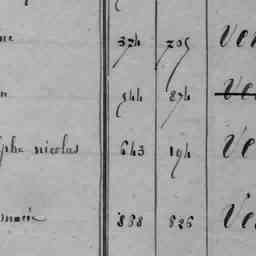 ne 374 705 Ve
n 544 874 Ve
phe nicolas 643 194 Ve
marie 888 826 Ve